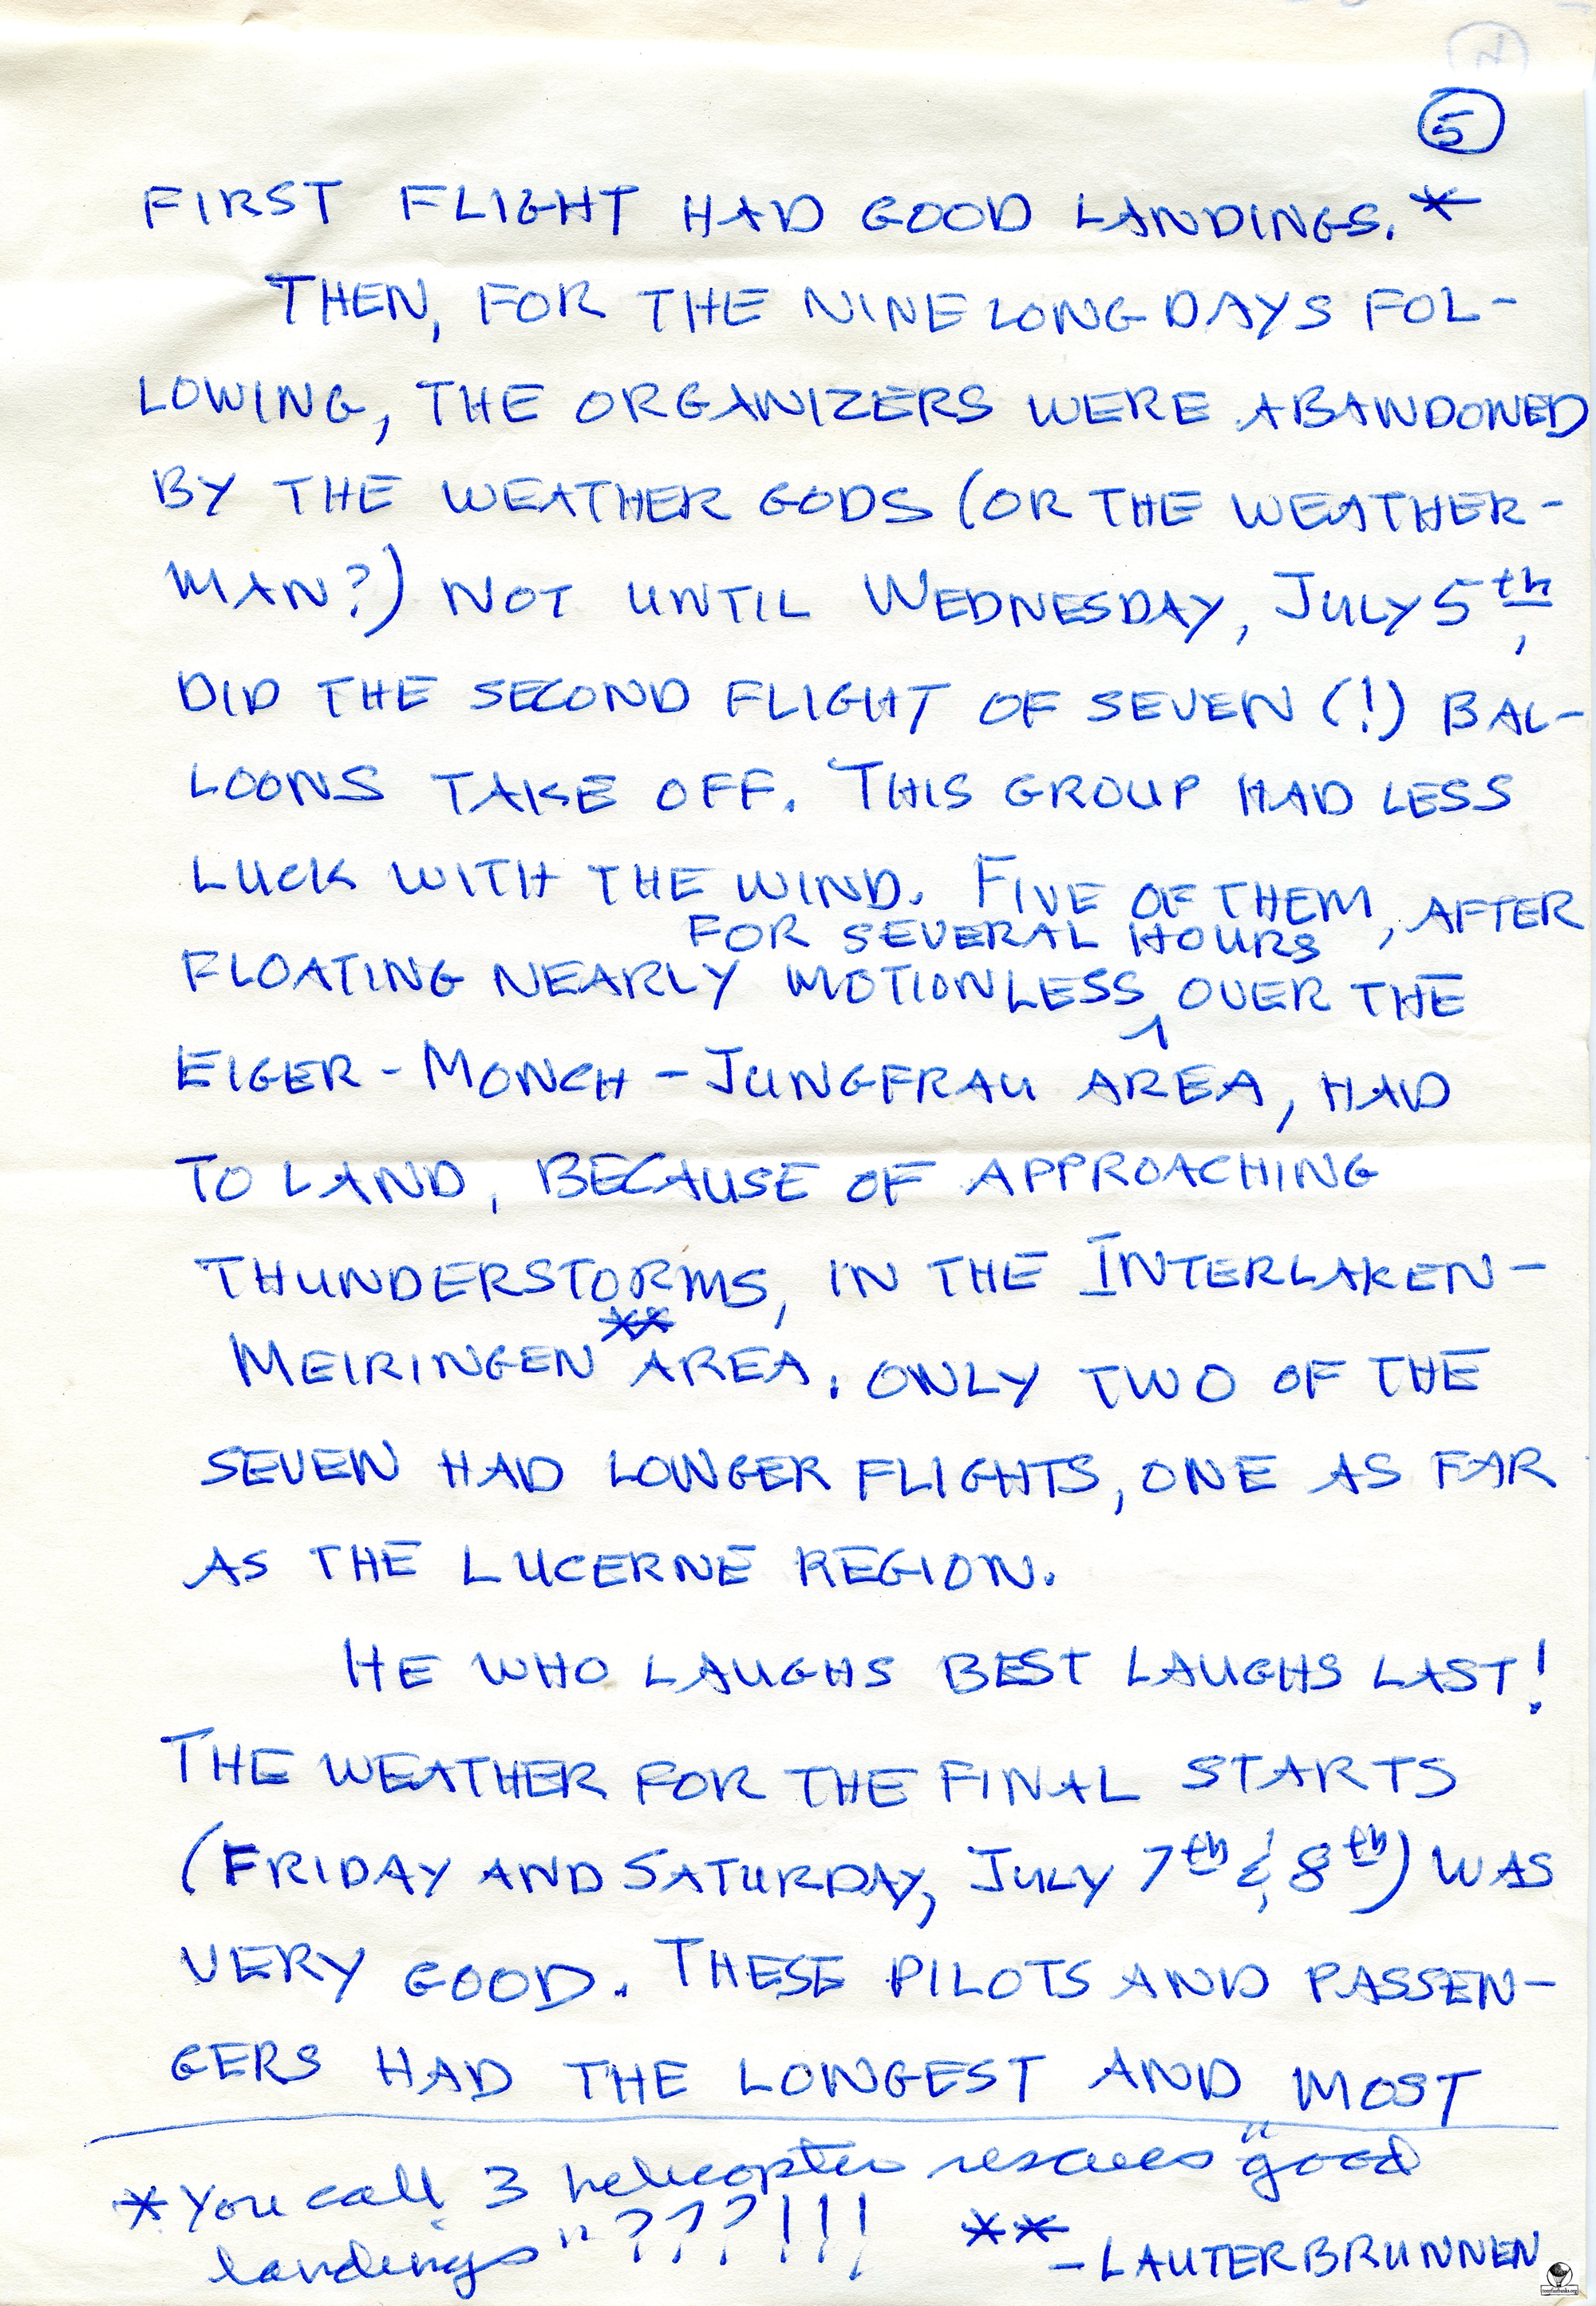 5
FIRST FLIGHT HAD GOOD LANDINGS.*
THEN, FOR THE NINE LONG DAYS FOL-
LOWING, THE ORGANIZERS WERE ABANDONED
BY THE WEATHER GODS (OR THE WEATHER-
MAN?) NOT UNTIL WEDNESDAY, JULY 5th,
DID THE SECOND FLIGHT OF SEVEN (!) BAL-
LOONS TAKE OFF. THIS GROUP HAD LESS
LUCK WITH THE WIND. FIVE OF THEM, AFTER
FOR SEVERAL HOURS
FLOATING NEARLY MOTIONLESS OVER THE
EIGER - MONCH - JUNGFRAU AREA, HAD
TO LAND, BECAUSE OF APPROACHING
THUNDERSTORMS, IN THE INTERLAKEN-
**
MEIRINGEN AREA. ONLY TWO OF THE
SEVEN HAD LONGER FLIGHTS, ONE AS FAR
AS THE LUCERNE REGION.
HE WHO LAUGHS BEST LAUGHS LAST!
THE WEATHER FOR THE FINAL STARTS
(FRIDAY AND SATURDAY, JULY 7th & 8th) WAS
VERY GOOD. THESE PILOTS AND PASSEN-
GERS HAD THE LONGEST AND MOST
*You call 3 helicopter rescues "good
landings"???!!! ** - LAUTERBRUNNEN